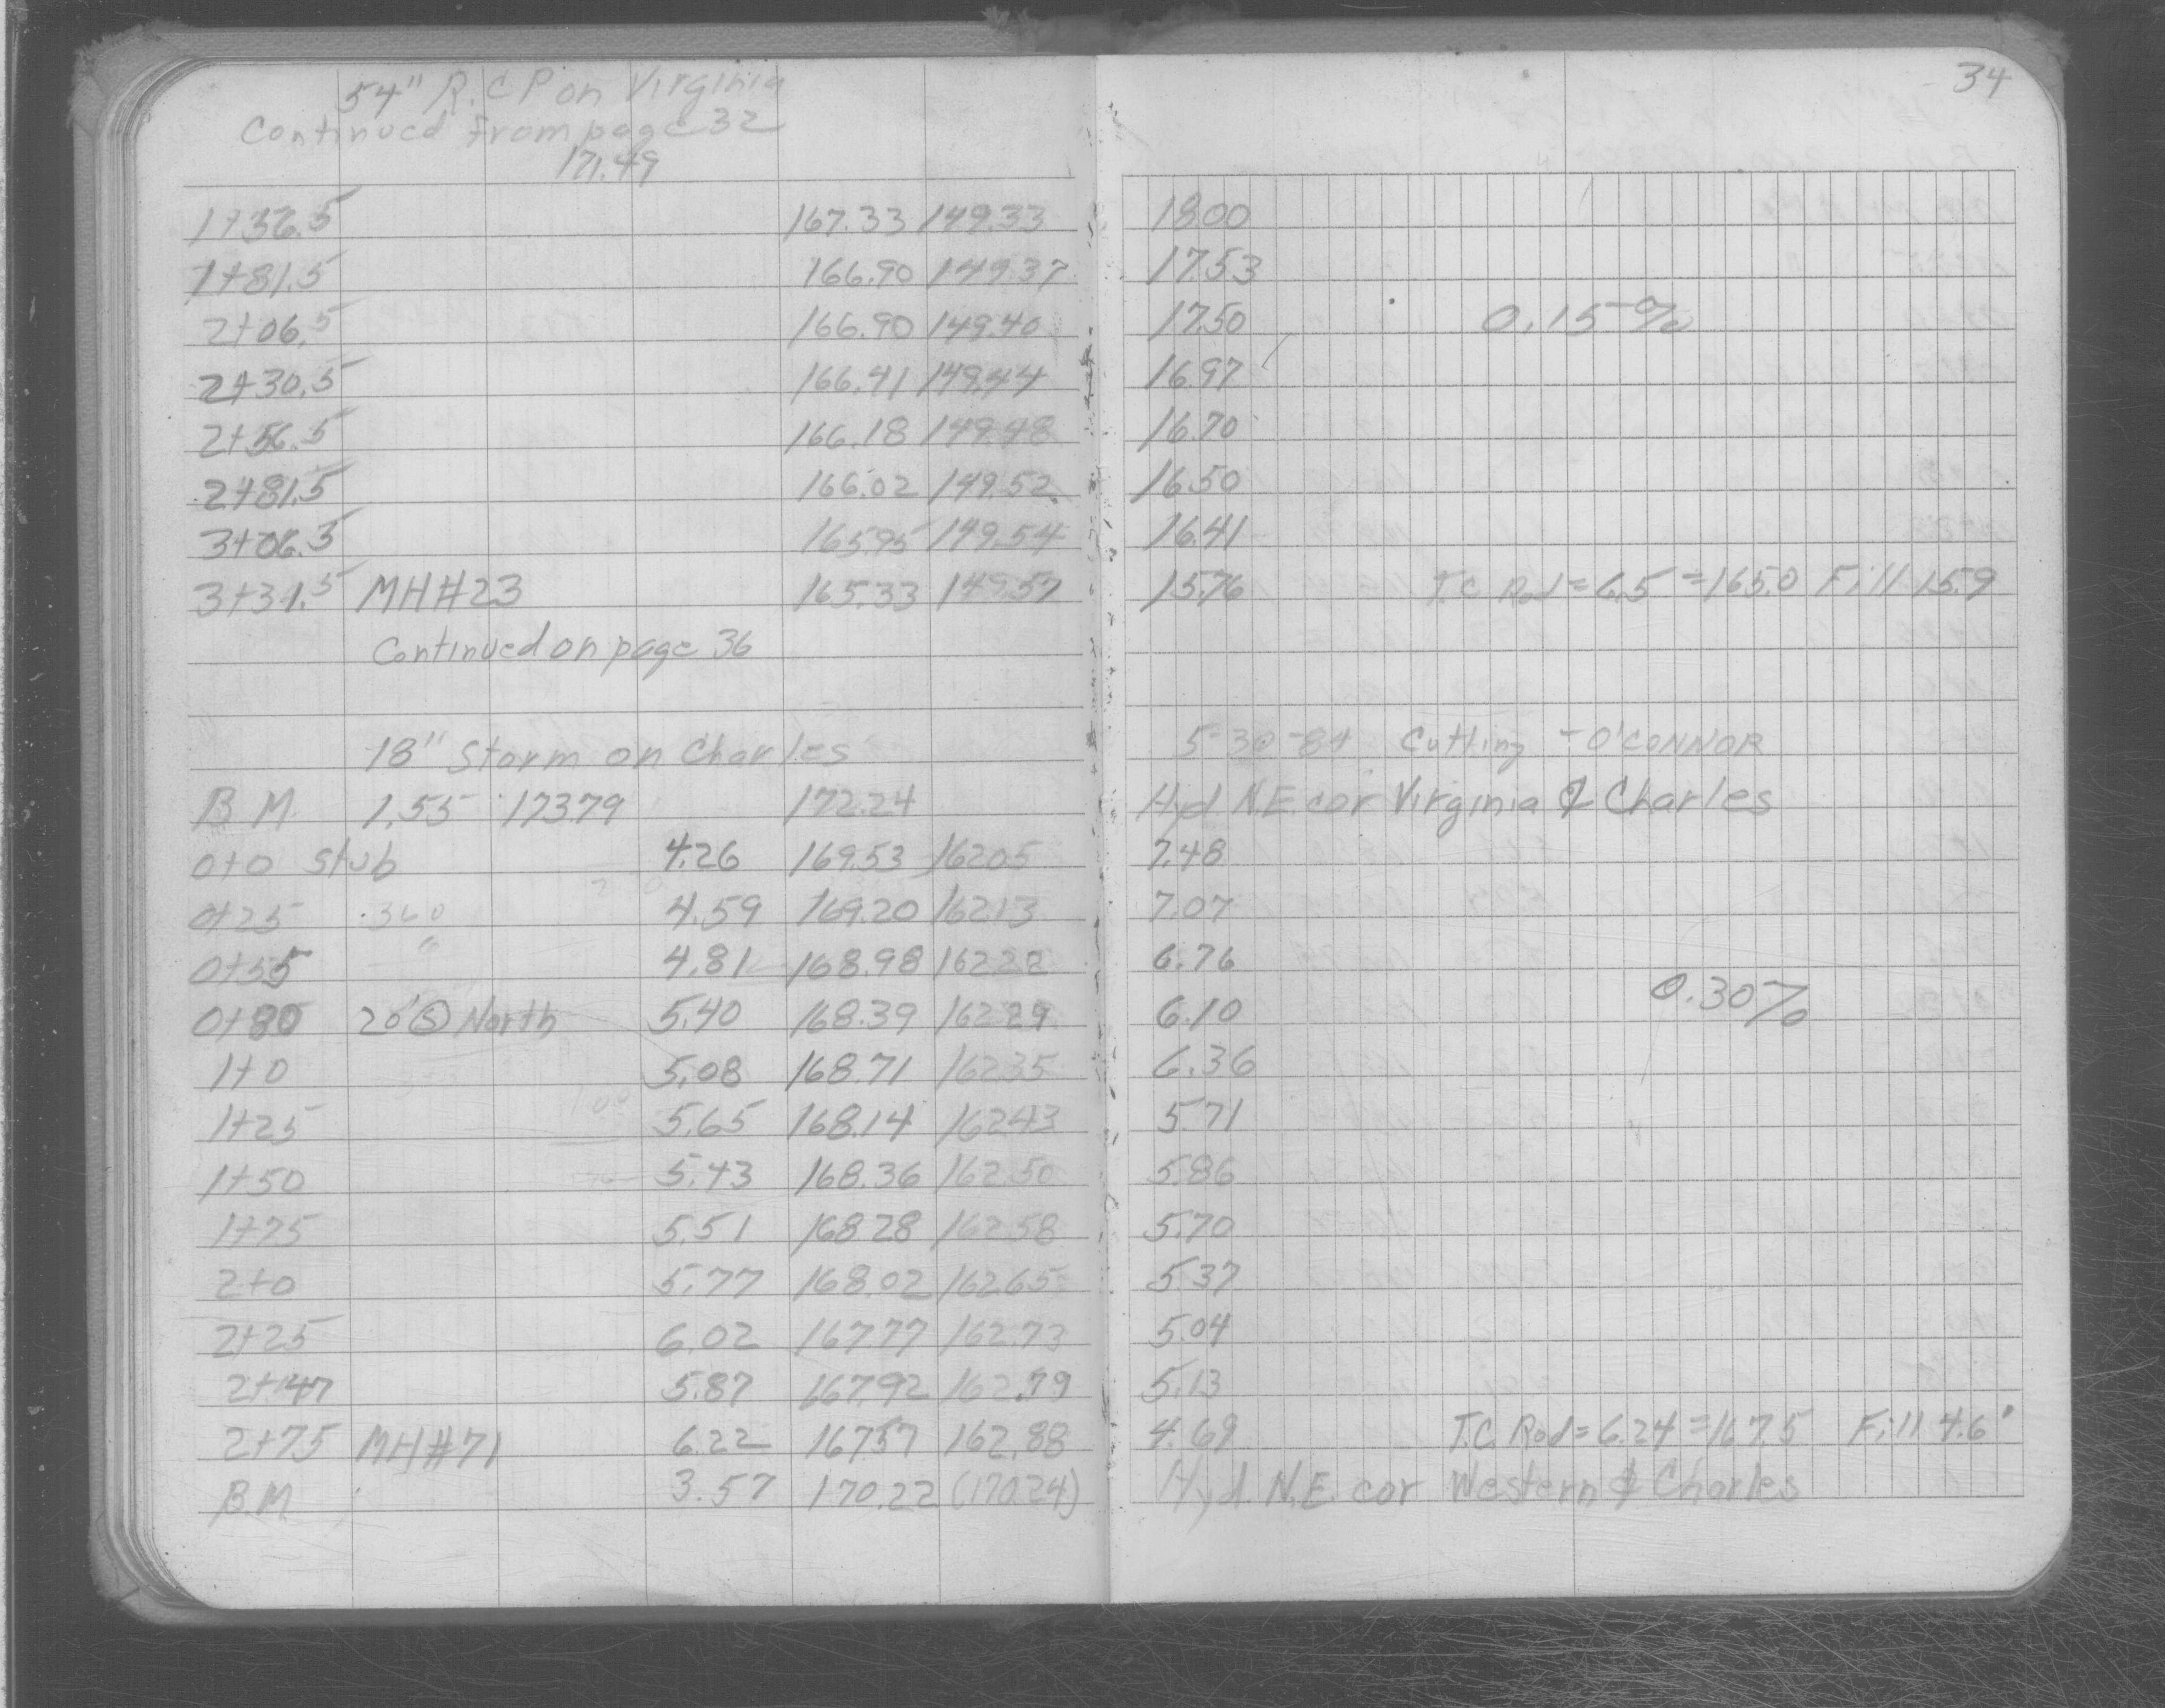 34
54" R.C P on Virginia
Continued From page 32
171.49
1+36.5 167.33 149.33 18.00
1+81.5 166.90 149.37 17.53
2+06.5 166.90 149.40 17.50 0.15%
2+30.5 166.41 149.44 16.97
2+56.5 166.18 149.48 16.70
2+81.5 166.02 149.52 16.50
3+06.5 165.95 149.54 16.41
3+31.5 MH#23 165.33 149.57 15.76 T.C Rod=6.5=165.0 Fill 15.9
Continued on page 36
18" Storm on Charles 5-30-84 Cutting - O'CONNOR
B M. 1.55 173.79 172.24 Hyd N.E. cor Virginia & Charles
0+0 Stub 4.26 169.53 162.05 7.48
0+25 .360 4.59 169.20 162.13 7.07
0+55 " 4.81 168.98 162.22 6.76
0+80 20' Ⓢ North 5.40 168.39 162.29 6.10 0.30%
1+0 5.08 168.71 162.35 6.36
1+25 5.65 168.14 162.43 5.71
1+50 5.43 168.36 162.50 5.86
1+75 5.51 168.28 162.58 5.70
2+0 5.77 168.02 162.65 5.37
2+25 6.02 167.77 162.73 5.04
2+47 5.87 167.92 162.79 5.13
2+75 MH#71 6.22 167.57 162.88 4.69 T.C. Rod=6.24=167.5 Fill 4.6'
B.M. 3.57 170.22 (170.24) Hyd. N.E. cor Western & Charles